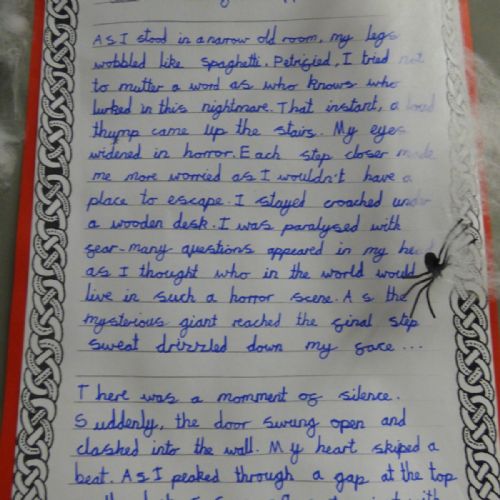 As I stood in a narrow old room, my legs
wobbled like spaghetti. Petrified, I tried not
to mutter a word as who knows who
lurked in this nightmare. That instant, a loud
thump came up the stairs. My eyes
widened in horror. Each step closer made
me more worried as I wouldn't have a
place to escape. I stayed croached under
a wooden desk. I was paralysed with
fear-many questions appeared in my head
as I thought who in the world would
live in such a horror scene. As the
mysterious giant reached the final step
sweat drizzled down my face...
There was a momment of silence.
Suddenly, the door swung open and
clashed into the wall. My heart skiped a
beat. As I peaked through a gap at the top